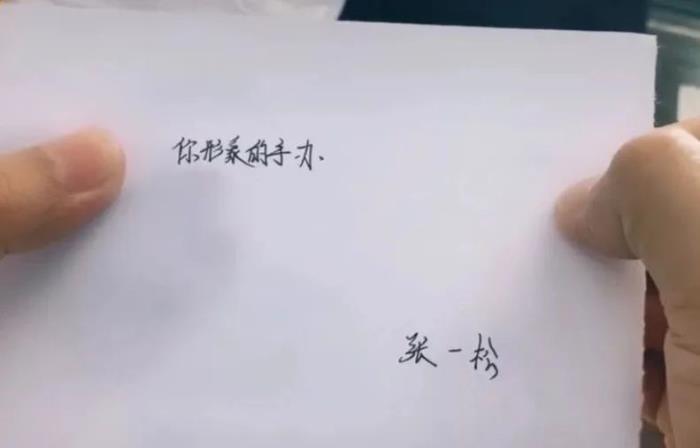 你形象的手办
张一松